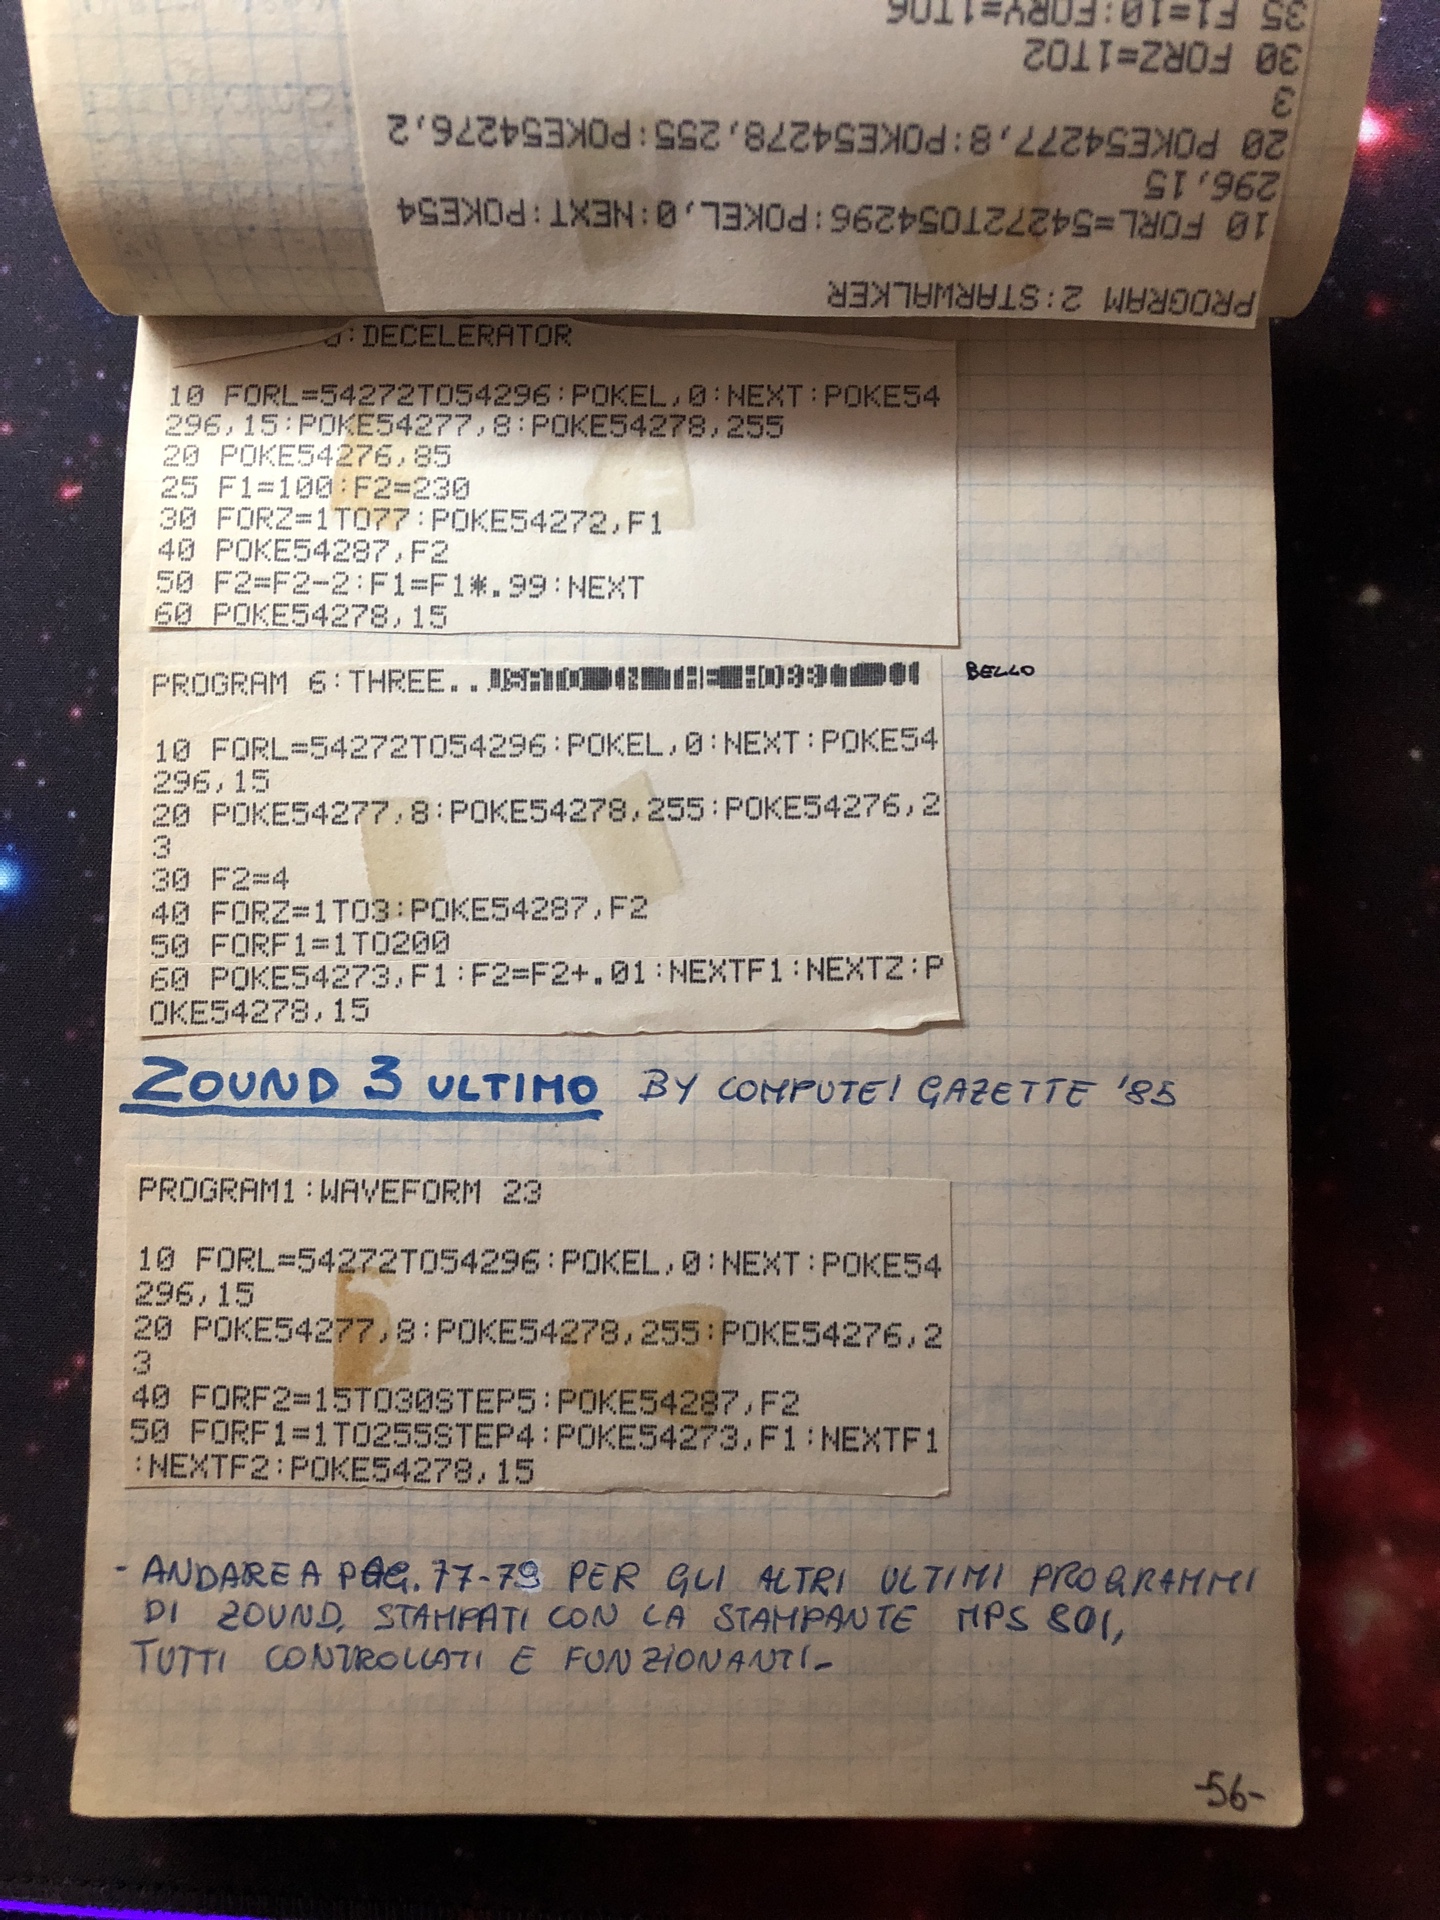 35 F1=10:FORY=1TO6
30 FORZ=1TO2
3
20 POKE54277,8:POKE54278,255:POKE54276,2
296,15
10 FORL=54272TO54296:POKEL,0:NEXT:POKE54
PROGRAM 2:STARWALKER
:DECELERATOR
10 FORL=54272TO54296:POKEL,0:NEXT:POKE54
296,15:POKE54277,8:POKE54278,255
20 POKE54276,85
25 F1=100:F2=230
30 FORZ=1TO77:POKE54272,F1
40 POKE54287,F2
50 F2=F2-2:F1=F1*.99:NEXT
60 POKE54278,15
PROGRAM 6:THREE..
BELLO
10 FORL=54272TO54296:POKEL,0:NEXT:POKE54
296,15
20 POKE54277,8:POKE54278,255:POKE54276,2
3
30 F2=4
40 FORZ=1TO3:POKE54287,F2
50 FORF1=1TO200
60 POKE54273,F1:F2=F2+.01:NEXTF1:NEXTZ:P
OKE54278,15
ZOUND 3 ULTIMO BY COMPUTE! GAZETTE '85
PROGRAM1:WAVEFORM 23
10 FORL=54272TO54296:POKEL,0:NEXT:POKE54
296,15
20 POKE54277,8:POKE54278,255:POKE54276,2
3
40 FORF2=15TO30STEP5:POKE54287,F2
50 FORF1=1TO255STEP4:POKE54273,F1:NEXTF1
:NEXTF2:POKE54278,15
- ANDARE A PAG. 77-79 PER GLI ALTRI ULTIMI PROGRAMMI
DI ZOUND, STAMPATI CON LA STAMPANTE MPS 801,
TUTTI CONTROLLATI E FUNZIONANTI-
-56-